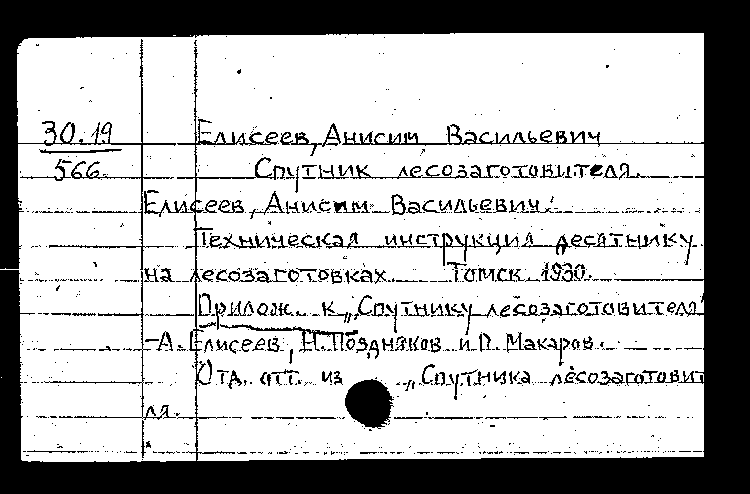 30.19 Елисеев, Анисим Васильевич
566. Спутник лесозаготовителя.
Елисеев, Анисим Васильевич.
Техническая инструкция десятнику
на лесозаготовках. Томск. 1930.
Прилож. к „Спутнику лесозаготовителя"
–А. Елисеев, Н. Поздняков и П. Макаров.
Отд. отт. из „Спутника лесозаготовит
ля.